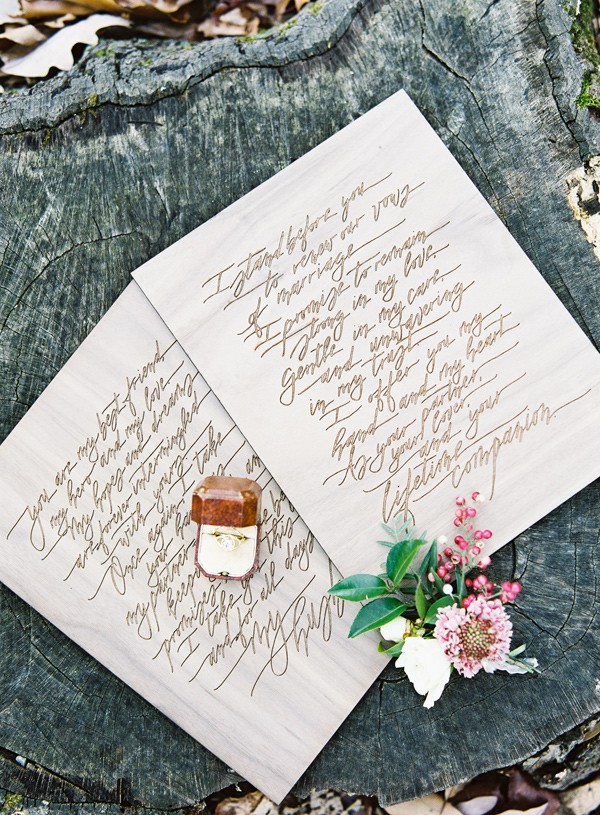 I stand before you
to renew our vows
of marriage
I promise to remain
strong in my love,
Gentle in my care,
and unwavering
in my trust
I offer you my
hand and my heart
As your partner,
your lover,
and your
lifetime companion.
you are my best friend,
my hero and my love
My hopes and dreams
are forever intermingled
with yours
I take
Once again
you
my partner
keep
this
promises
I take
and for all days
my